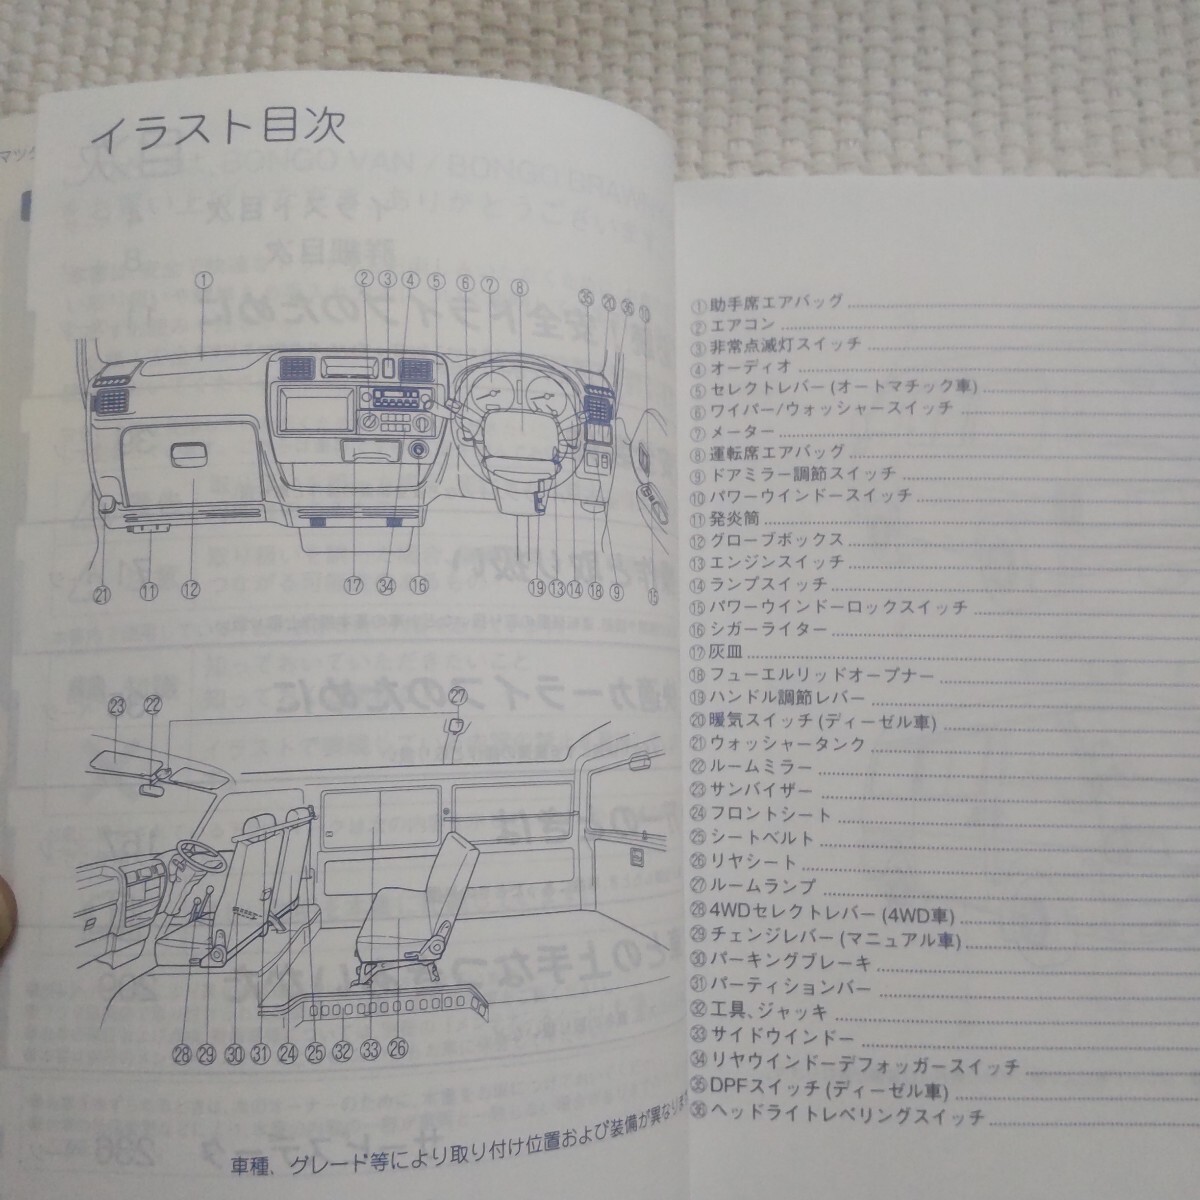 イラスト目次
マツダ
① ② ③ ④ ⑤ ⑥ ⑦ ⑧ ㉟ ⑳ ㊱ ⑩
㉑ ⑪ ⑫ ⑰ ㉞ ⑯ ⑲ ⑬ ⑭ ⑱ ⑨ ⑮
㉓ ㉒ ㉗
㉘ ㉙ ㉚ ㉛ ㉔ ㉕ ㉜ ㉝ ㉖
車種、グレード等により取り付け位置および装備が異なりま
①助手席エアバッグ
②エアコン
③非常点滅灯スイッチ
④オーディオ
⑤セレクトレバー(オートマチック車)
⑥ワイパー/ウォッシャースイッチ
⑦メーター
⑧運転席エアバッグ
⑨ドアミラー調節スイッチ
⑩パワーウインドースイッチ
⑪発炎筒
⑫グローブボックス
⑬エンジンスイッチ
⑭ランプスイッチ
⑮パワーウインドーロックスイッチ
⑯シガーライター
⑰灰皿
⑱フューエルリッドオープナー
⑲ハンドル調節レバー
⑳暖気スイッチ(ディーゼル車)
㉑ウォッシャータンク
㉒ルームミラー
㉓サンバイザー
㉔フロントシート
㉕シートベルト
㉖リヤシート
㉗ルームランプ
㉘4WDセレクトレバー(4WD車)
㉙チェンジレバー(マニュアル車)
㉚パーキングブレーキ
㉛パーティションバー
㉜工具、ジャッキ
㉝サイドウインドー
㉞リヤウインドーデフォッガースイッチ
㉟DPFスイッチ(ディーゼル車)
㊱ヘッドライトレベリングスイッチ